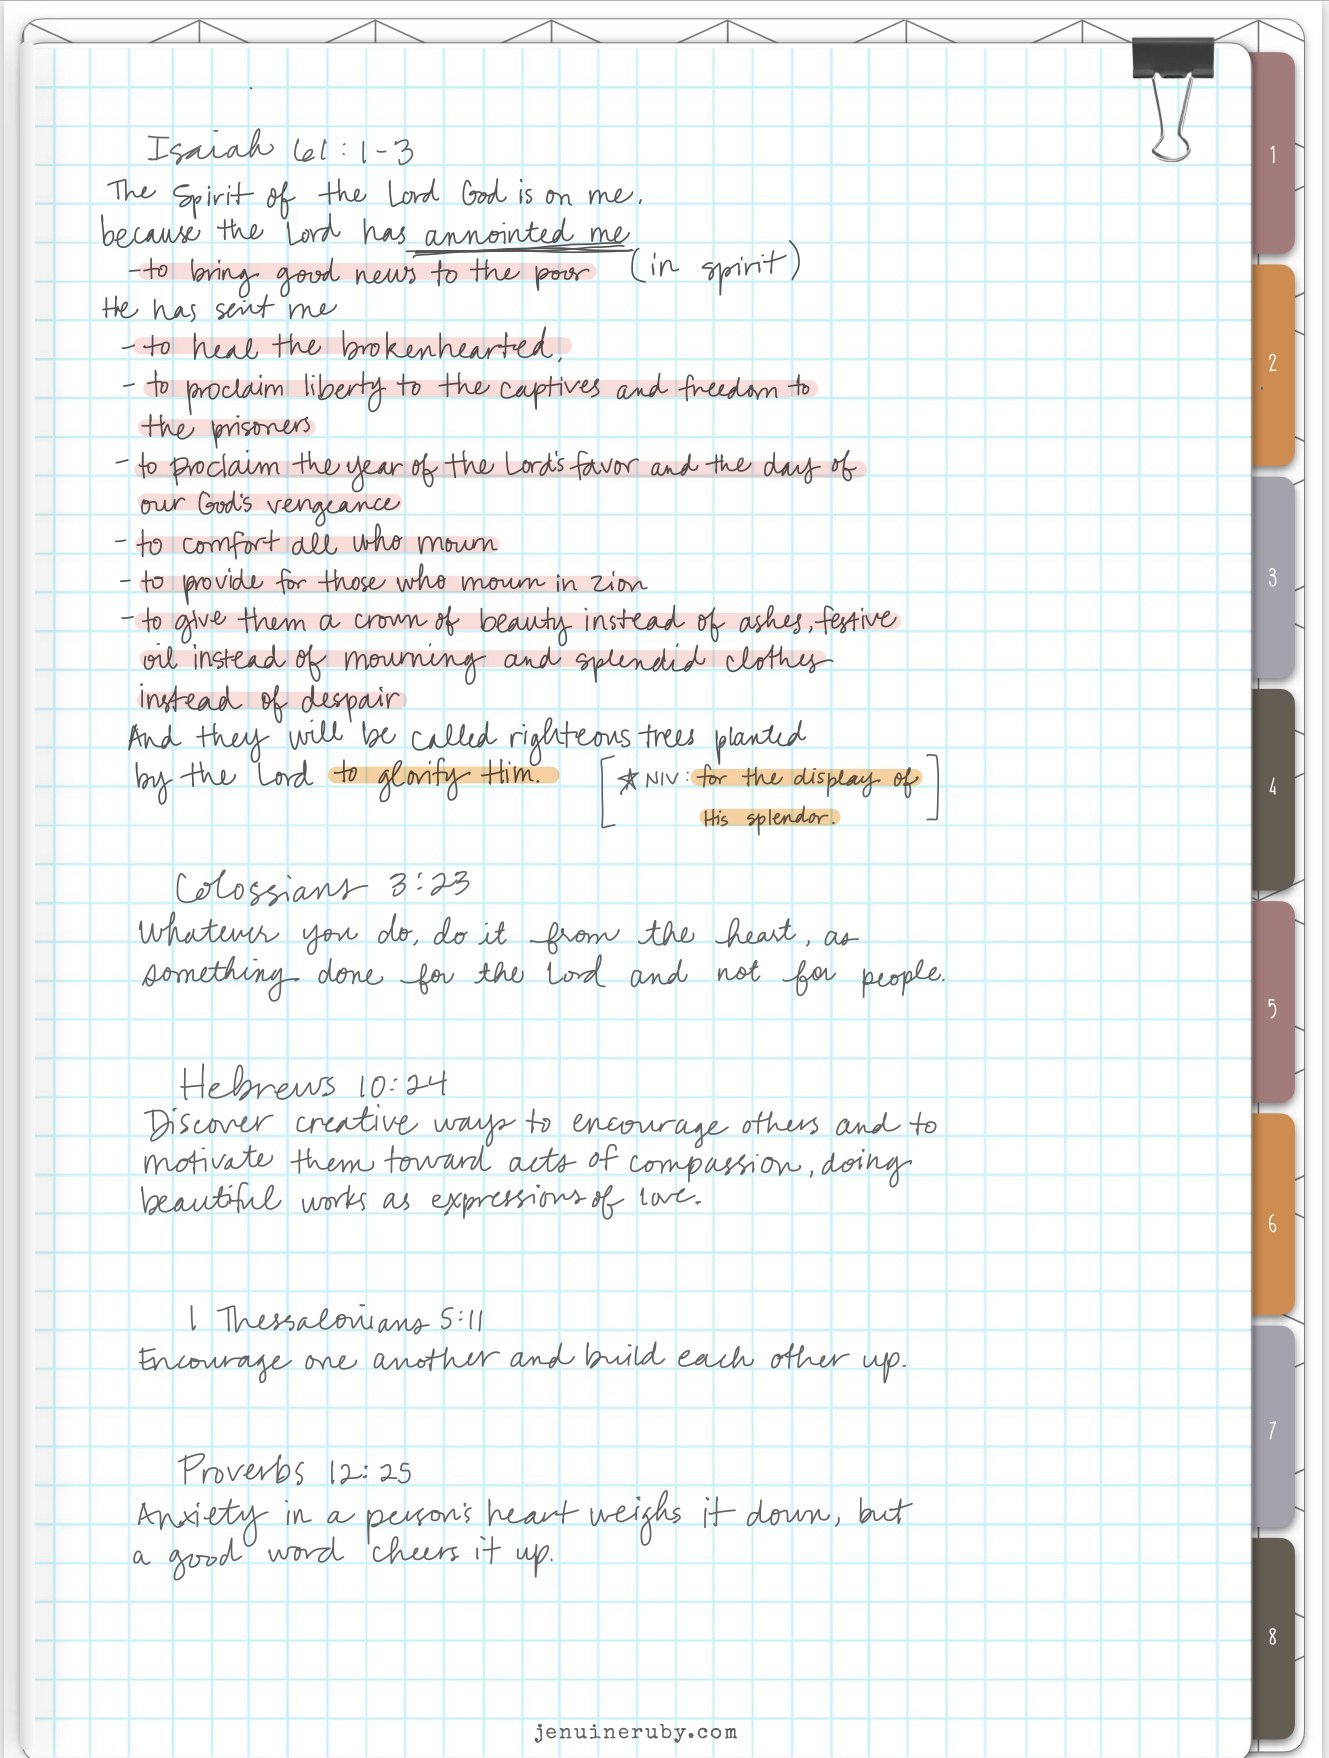 Isaiah 61:1-3
The Spirit of the Lord God is on me,
because the Lord has annointed me
- to bring good news to the poor (in spirit)
He has sent me
- to heal the brokenhearted,
- to proclaim liberty to the captives and freedom to
the prisoners
- to proclaim the year of the Lord's favor and the day of
our God's vengeance
- to comfort all who mourn
- to provide for those who mourn in Zion
- to give them a crown of beauty instead of ashes, festive
oil instead of mourning and splendid clothes
instead of despair
And they will be called righteous trees planted
by the Lord to glorify Him.
[★ NIV: for the display of
His splendor.]
Colossians 3:23
Whatever you do, do it from the heart, as
something done for the Lord and not for people.
Hebrews 10:24
Discover creative ways to encourage others and to
motivate them toward acts of compassion, doing
beautiful works as expressions of love.
1 Thessalonians 5:11
Encourage one another and build each other up.
Proverbs 12:25
Anxiety in a person's heart weighs it down, but
a good word cheers it up.
1
2
3
4
5
6
7
8
jenuineruby.com